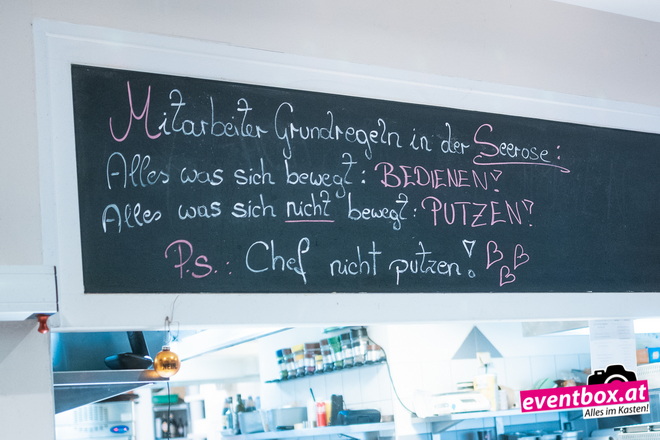 Mitarbeiter Grundregeln in der Seerose:
Alles was sich bewegt: BEDIENEN!
Alles was sich nicht bewegt: PUTZEN!
P.s.: Chef nicht putzen!
eventbox.at
Alles im Kasten!